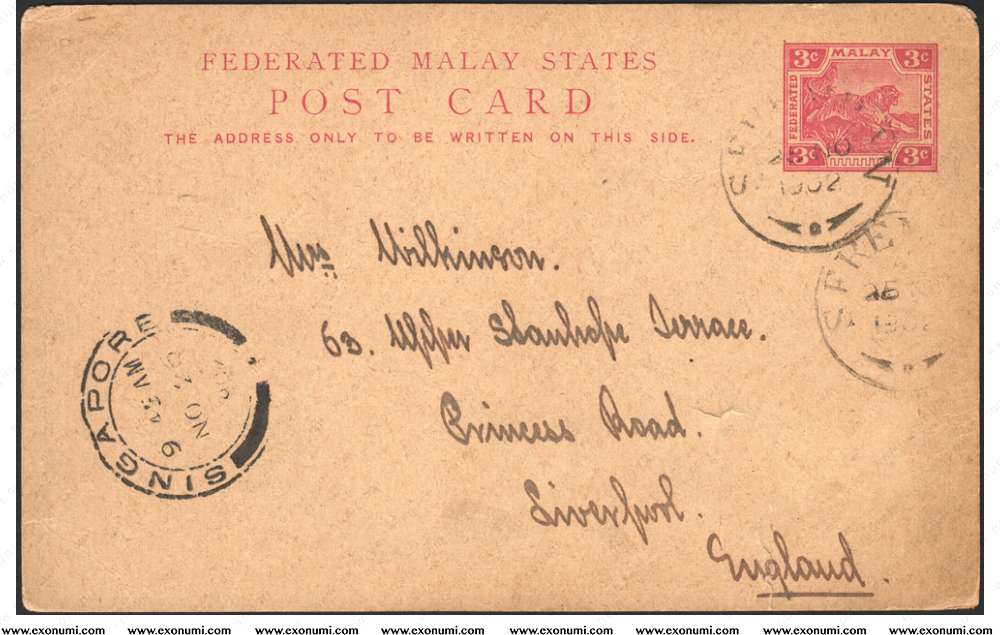 FEDERATED MALAY STATES
POST CARD
THE ADDRESS ONLY TO BE WRITTEN ON THIS SIDE.
3c MALAY 3c
FEDERATED
STATES
3c 3c
1902
Mrs Wilkinson.
63. Upper Stanhope Terrace.
Princess Road.
Liverpool.
England.
SINGAPORE
9 45 AM
NO
www.exonumi.com www.exonumi.com www.exonumi.com www.exonumi.com www.exonumi.com www.exonumi.com www.exonumi.com www.exonumi.com